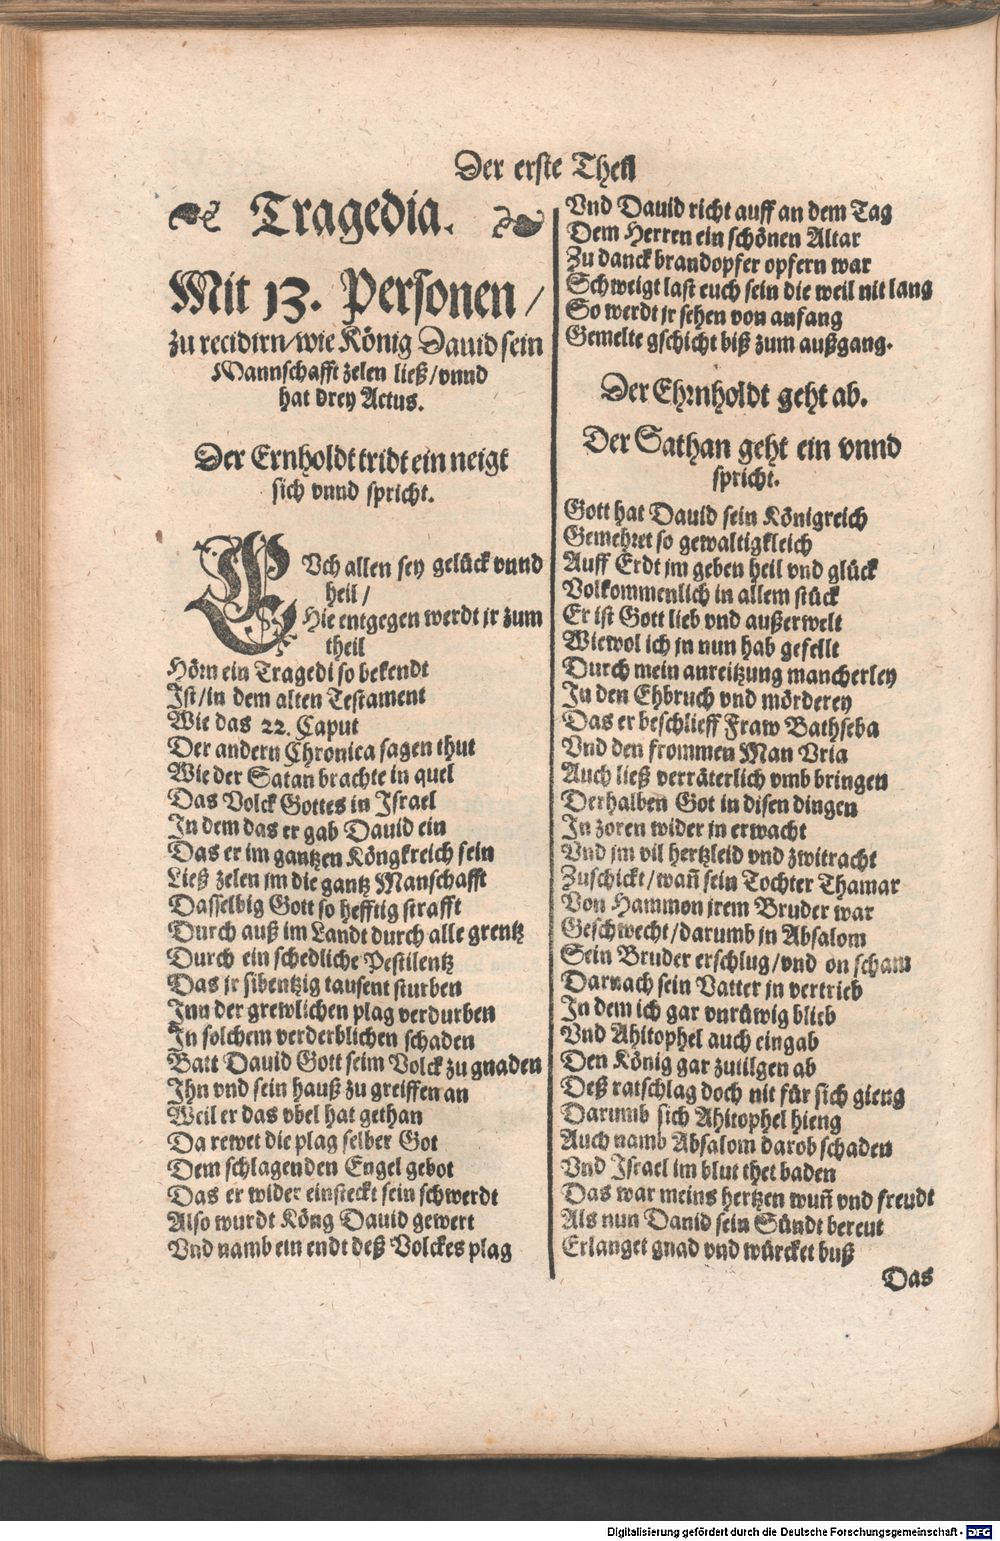 Der erste Theil
Tragedia.
Mit 13. Personen /
zu recidirn/wie König Dauid sein
Mannschafft zelen ließ/vnnd
hat drey Actus.
Der Ernholdt tridt ein neigt
sich vnnd spricht.
EVch allen sey gelück vnnd
heil /
Hie entgegen werdt jr zum
theil
Hörn ein Tragedi so bekendt
Ist/in dem alten Testament
Wie das 22. Caput
Der andern Chronica sagen thut
Wie der Satan brachte in quel
Das Volck Gottes in Israel
In dem das er gab Dauid ein
Das er im gantzen Köngkreich sein
Ließ zelen jm die gantz Manschafft
Dasselbig Gott so hefftig strafft
Durch auß im Landt durch alle grentz
Durch ein schedliche Pestilentz
Das jr sibentzig tausent sturben
Inn der grewlichen plag verdurben
In solchem verderblichen schaden
Batt Dauid Gott seim Volck zu gnaden
Ihn vnd sein hauß zu greiffen an
Weil er das vbel hat gethan
Da rewet die plag selber Got
Dem schlagenden Engel gebot
Das er wider einsteckt sein schwerdt
Also wurdt Köng Dauid gewert
Vnd namb ein endt deß Volckes plag
Vnd Dauid richt auff an dem Tag
Dem Herren ein schönen Altar
Zu danck brandopfer opfern war
Schweigt last euch sein die weil nit lang
So werdt jr sehen von anfang
Gemelte gschicht biß zum außgang.
Der Ehrnholdt geht ab.
Der Sathan geht ein vnnd
spricht.
Gott hat Dauid sein Königreich
Gemehret so gewaltigkleich
Auff Erdt jm geben heil vnd glück
Volkommenlich in allem stück
Er ist Gott lieb vnd außerwelt
Wiewol ich jn nun hab gefellt
Durch mein anreitzung mancherley
In den Ehbruch vnd mörderey
Das er beschlieff Fraw Bathseba
Vnd den frommen Man Vria
Auch ließ verräterlich vmb bringen
Derhalben Got in disen dingen
In zoren wider jn erwacht
Vnd jm vil hertzleid vnd zwitracht
Zuschickt/wañ sein Tochter Thamar
Von Hammon jrem Bruder war
Geschwecht/darumb jn Absalom
Sein Bruder erschlug/vnd on scham
Darnach sein Vatter jn vertrieb
In dem ich gar vnrüwig blieb
Vnd Ahitophel auch eingab
Den König gar zutilgen ab
Deß ratschlag doch nit für sich gieng
Darumb sich Ahitophel hieng
Auch namb Absalom darob schaden
Vnd Israel im blut thet baden
Das war meins hertzen wuñ vnd freudt
Als nun Danid sein Sündt bereut
Erlanget gnad vnd würcket buß
Das
Digitalisierung gefördert durch die Deutsche Forschungsgemeinschaft - DFG